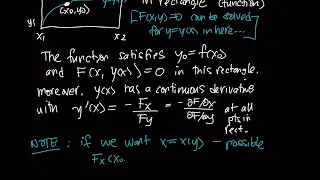 in rectangle (function)
(x₀,y₀)
[F(x,y)=0 can be solved
y₁
for y=y(x) in here...]
x₁ x₂
The function satisfies y₀=f(x₀)
and F(x, y(x))=0 in this rectangle.
moreover, y(x) has a continuous derivative
with y'(x) = -Fx/Fy = -∂F/∂x / ∂F/∂y at all
pts in
rect.
NOTE: if we want x=x(y) - possible
Fx(x₀